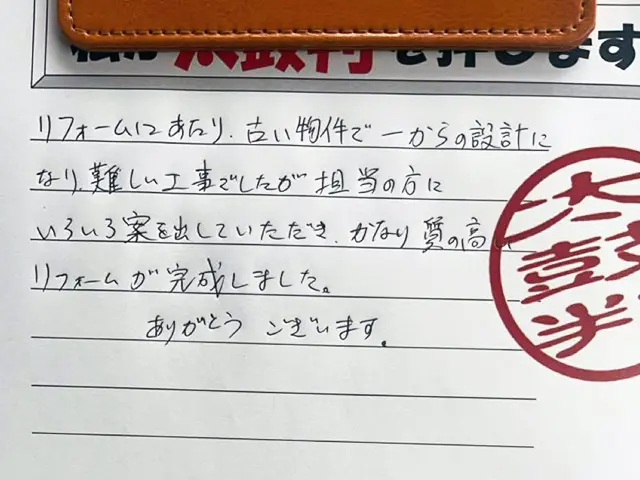 太鼓判を押します
リフォームにあたり、古い物件で一からの設計に
なり、難しい工事でしたが担当の方に
いろいろ案を出していただき、かなり質の高い
リフォームが完成しました。
ありがとうございます。
太鼓判